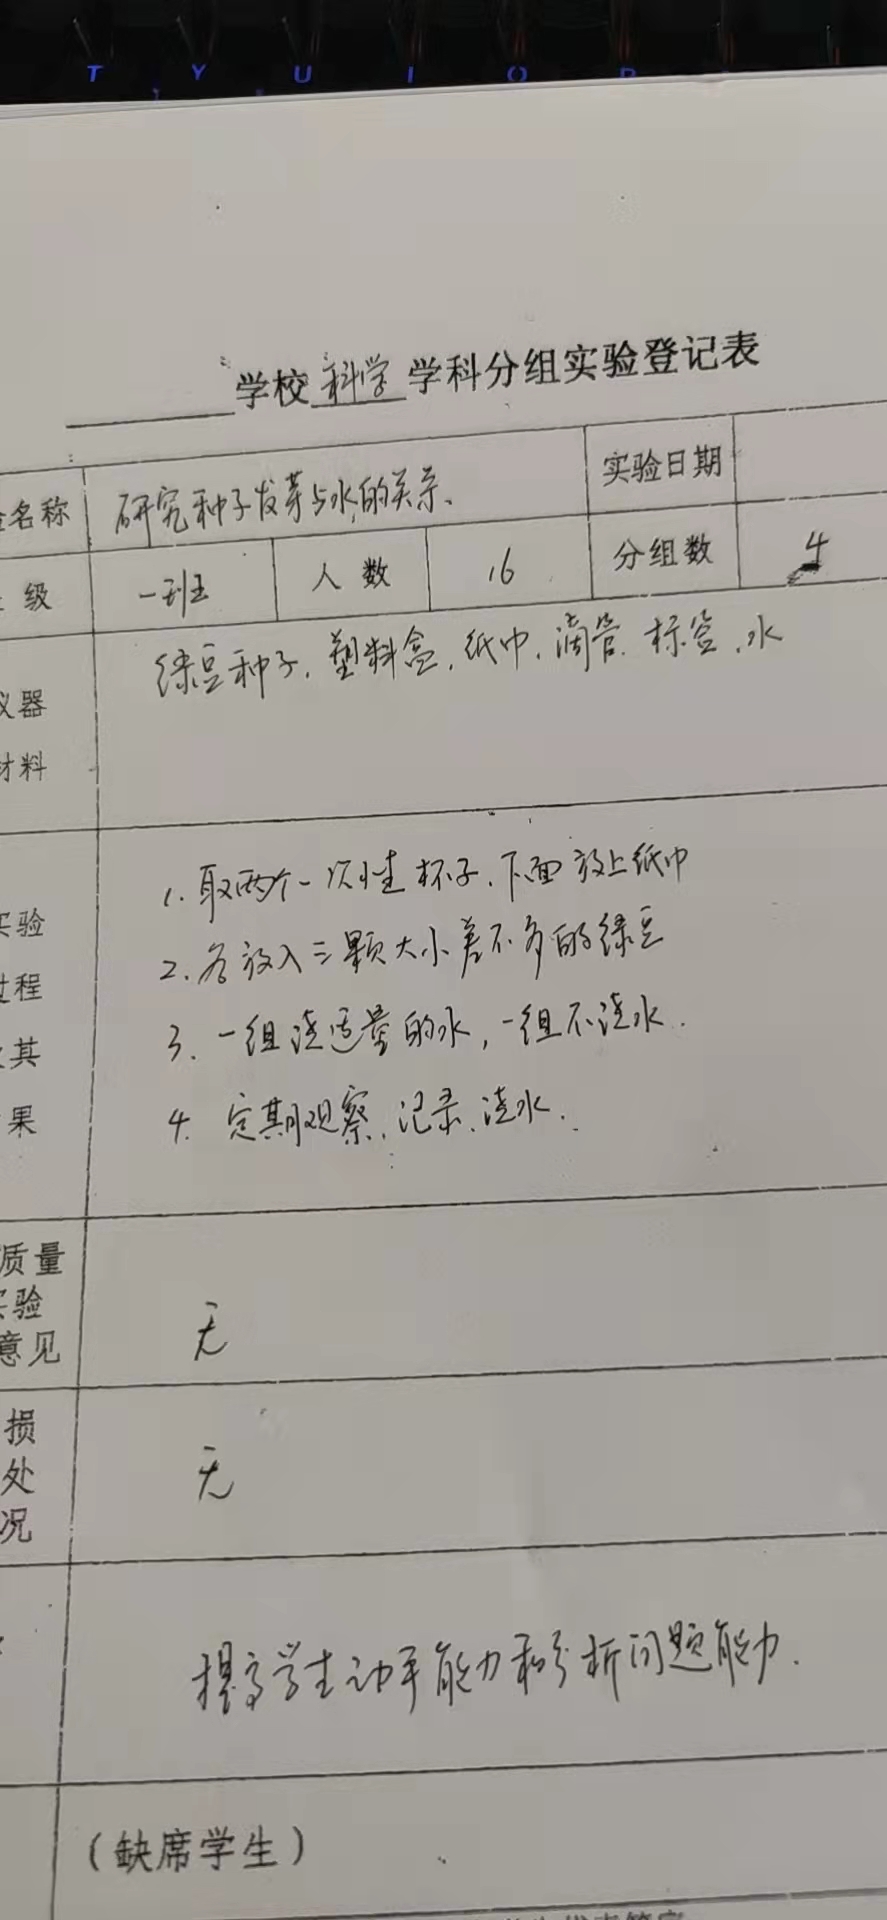 T Y U I O P
学校 科学 学科分组实验登记表
名称 研究种子发芽与水的关系、 实验日期
级 一班 人数 16 分组数 4
仪器 绿豆种子、塑料盒、纸巾、滴管、标签、水
材料
实验 1. 取两个一次性杯子、下面放上纸巾
过程 2、各放入三颗大小差不多的绿豆
及其 3、一组浇适量的水，一组不浇水.
果 4. 定期观察、记录、浇水.
质量
实验
意见 无
损
处 无
况
提高学生动手能力和分析问题能力.
（缺席学生）